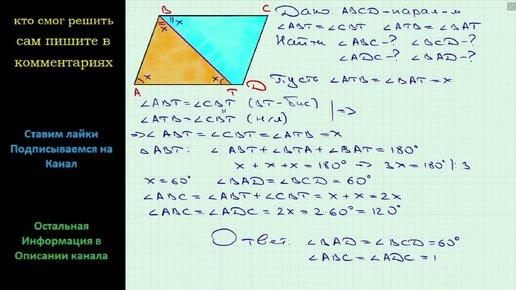 кто смог решить
сам пишите в
комментариях
Ставим лайки
Подписываемся на
Канал
Остальная
Информация в
Описании канала
B
C
x
x
x
A
T
D
Дано: ABCD-парал-м
∠ABT=∠CBT ∠ATB=∠BAT
Найти ∠ABC-? ∠BCD-?
∠ADC-? ∠BAD-?
Пусть ∠ATB=∠BAT=x
∠ABT=∠CBT (BT-бис)
∠ATB=∠CBT (н/л) |=>
=>∠ABT=∠CBT=∠ATB=x
△ABT: ∠ABT+∠BTA+∠BAT=180°
x+x+x=180° => 3x=180°|:3
x=60° ∠BAD=∠BCD=60°
∠ABC=∠ABT+∠CBT=x+x=2x
∠ABC=∠ADC=2x=2·60°=120°
Ответ: ∠BAD=∠BCD=60°
∠ABC=∠ADC=1